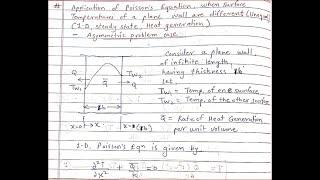 # Application of Poisson's Equation when surface
Temperatures of a plane wall are different (Unequal)
(1-D, steady state, Heat generation)
- Asymmetric problem case
Consider a plane wall
of infinite length,
having thickness 'b'
let
Tw1 = Temp. of one surface
Tw2 = Temp. of the other surface
q̅ = Rate of Heat Generation
per unit volume
Q
Tw1
q̅
Tw2
Q
b
x=0
x
x=b
1-D, Poisson's Eqn is given by
∂²T/∂x² + q̅/k = 0